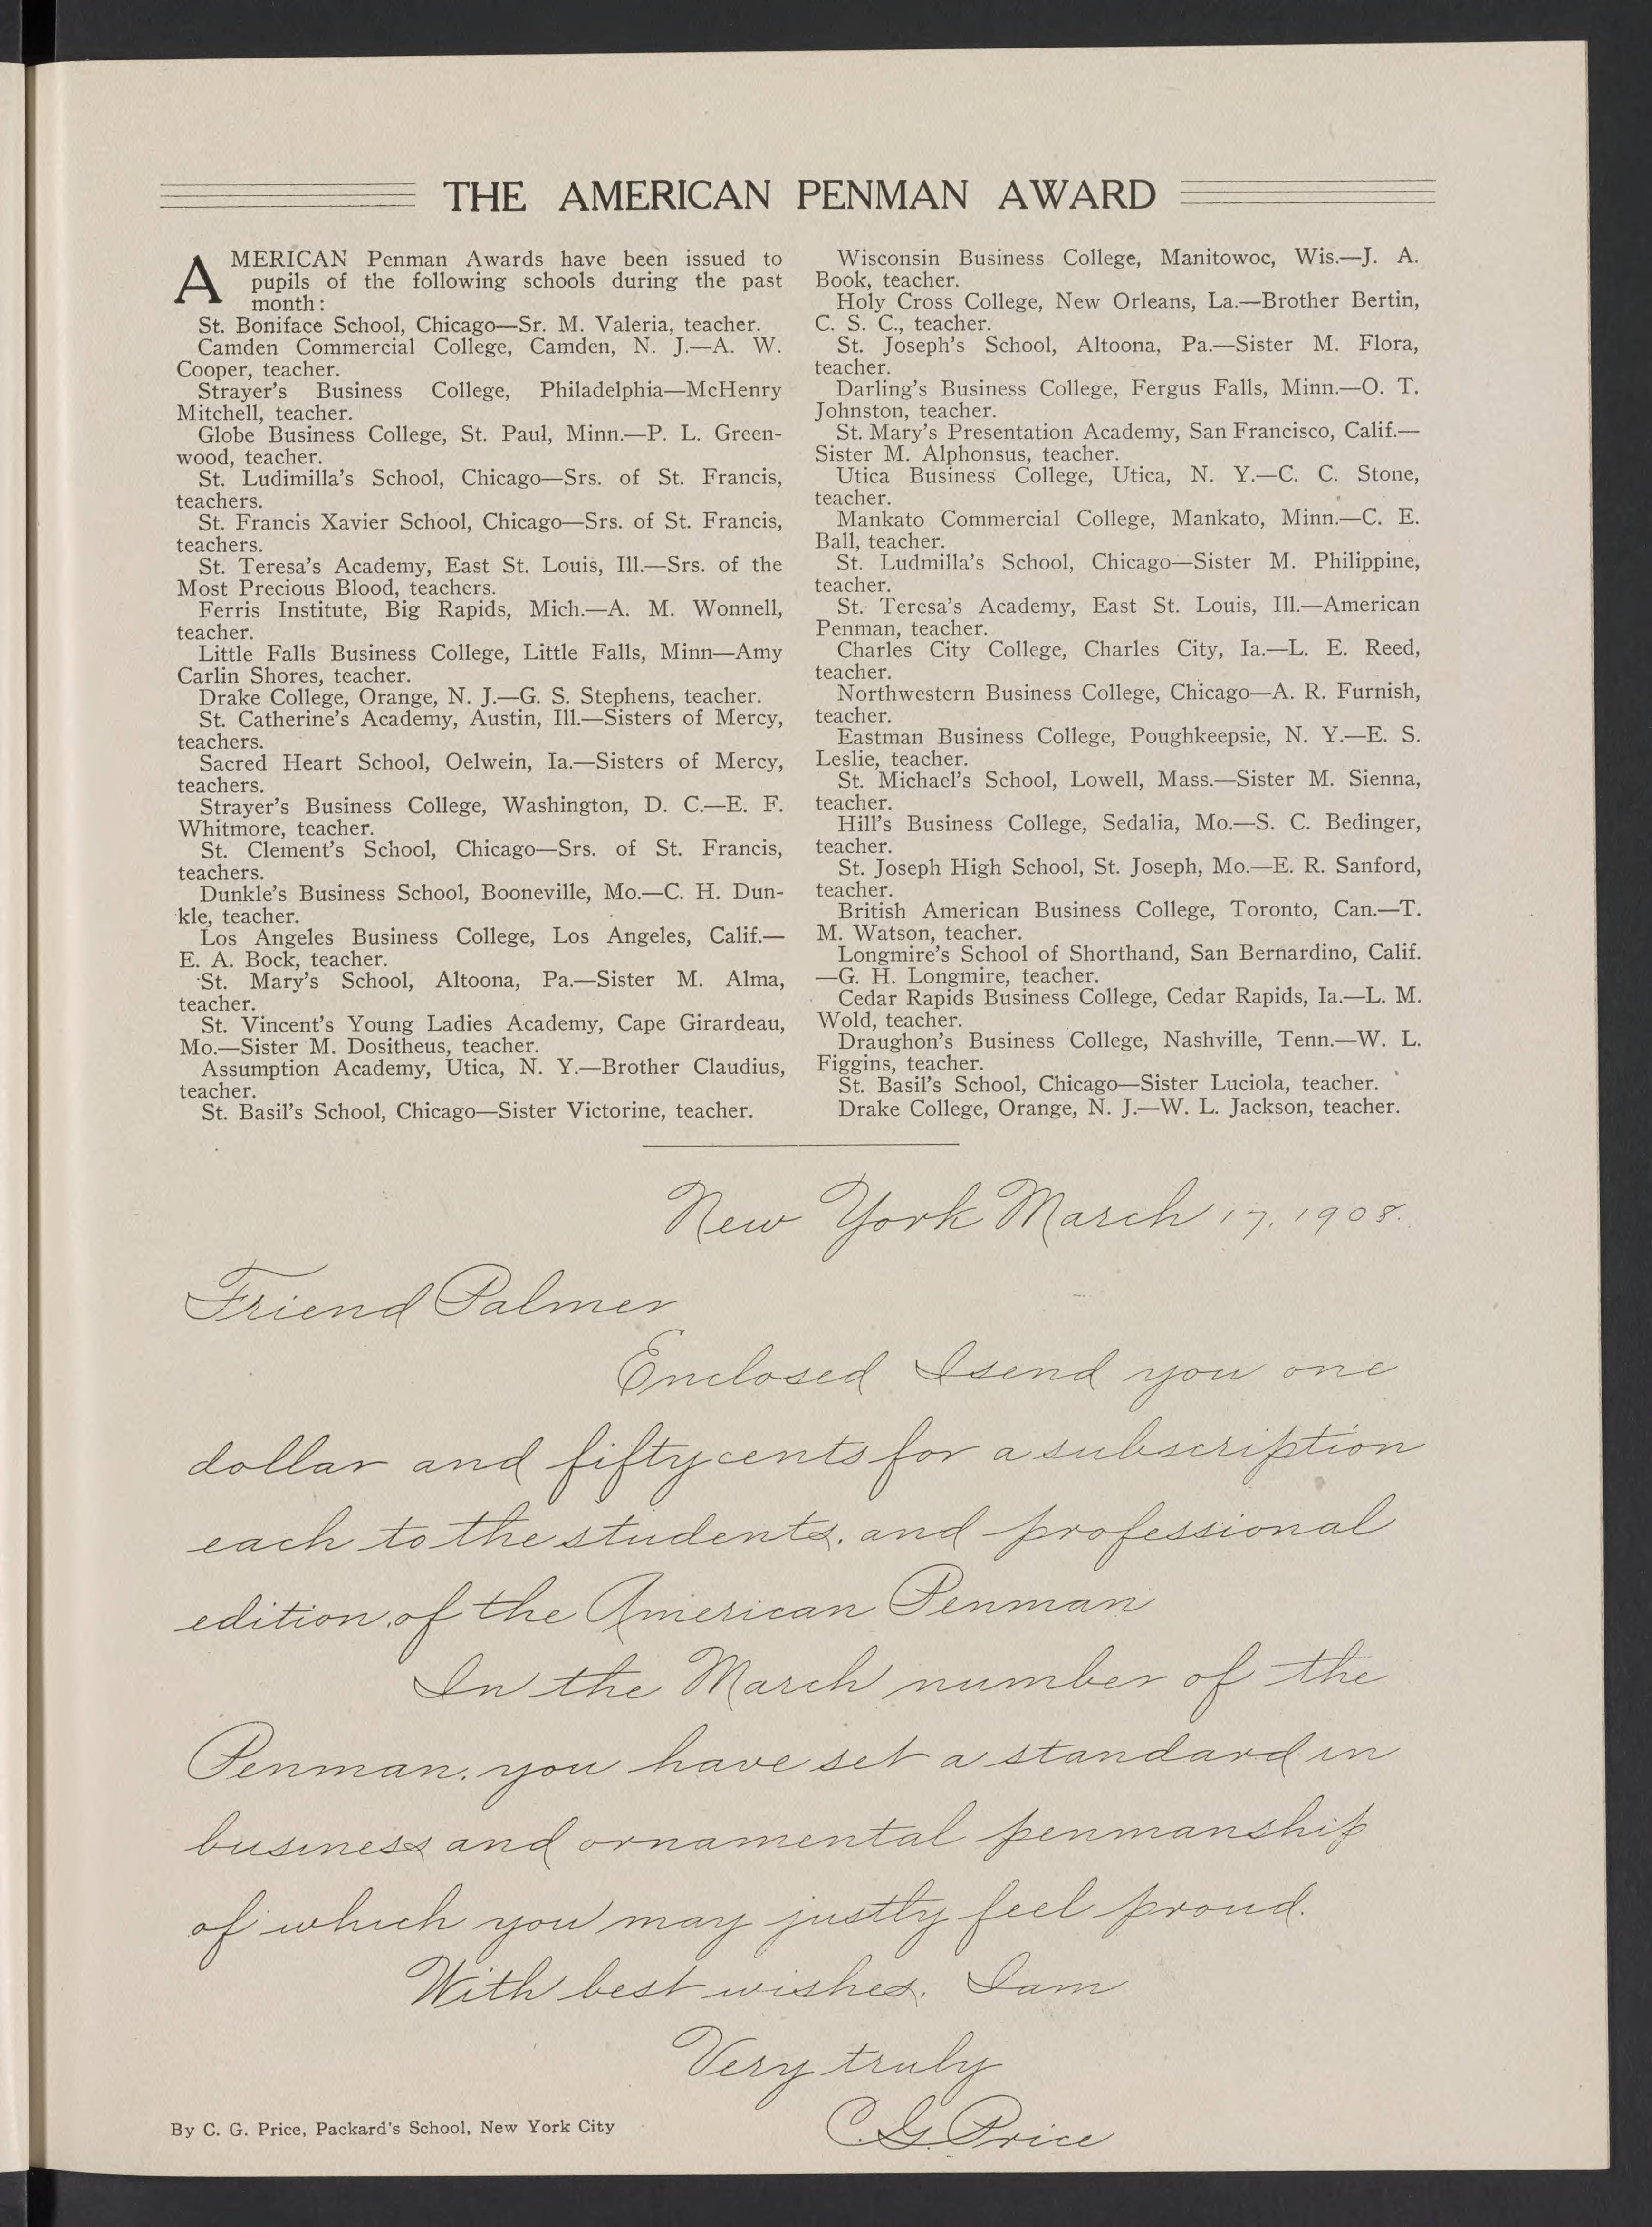 THE AMERICAN PENMAN AWARD
AMERICAN Penman Awards have been issued to
pupils of the following schools during the past
month:
St. Boniface School, Chicago—Sr. M. Valeria, teacher.
Camden Commercial College, Camden, N. J.—A. W.
Cooper, teacher.
Strayer's Business College, Philadelphia—McHenry
Mitchell, teacher.
Globe Business College, St. Paul, Minn.—P. L. Green-
wood, teacher.
St. Ludimilla's School, Chicago—Srs. of St. Francis,
teachers.
St. Francis Xavier School, Chicago—Srs. of St. Francis,
teachers.
St. Teresa's Academy, East St. Louis, Ill.—Srs. of the
Most Precious Blood, teachers.
Ferris Institute, Big Rapids, Mich.—A. M. Wonnell,
teacher.
Little Falls Business College, Little Falls, Minn—Amy
Carlin Shores, teacher.
Drake College, Orange, N. J.—G. S. Stephens, teacher.
St. Catherine's Academy, Austin, Ill.—Sisters of Mercy,
teachers.
Sacred Heart School, Oelwein, Ia.—Sisters of Mercy,
teachers.
Strayer's Business College, Washington, D. C.—E. F.
Whitmore, teacher.
St. Clement's School, Chicago—Srs. of St. Francis,
teachers.
Dunkle's Business School, Booneville, Mo.—C. H. Dun-
kle, teacher.
Los Angeles Business College, Los Angeles, Calif.—
E. A. Bock, teacher.
St. Mary's School, Altoona, Pa.—Sister M. Alma,
teacher.
St. Vincent's Young Ladies Academy, Cape Girardeau,
Mo.—Sister M. Dositheus, teacher.
Assumption Academy, Utica, N. Y.—Brother Claudius,
teacher.
St. Basil's School, Chicago—Sister Victorine, teacher.
Wisconsin Business College, Manitowoc, Wis.—J. A.
Book, teacher.
Holy Cross College, New Orleans, La.—Brother Bertin,
C. S. C., teacher.
St. Joseph's School, Altoona, Pa.—Sister M. Flora,
teacher.
Darling's Business College, Fergus Falls, Minn.—O. T.
Johnston, teacher.
St. Mary's Presentation Academy, San Francisco, Calif.—
Sister M. Alphonsus, teacher.
Utica Business College, Utica, N. Y.—C. C. Stone,
teacher.
Mankato Commercial College, Mankato, Minn.—C. E.
Ball, teacher.
St. Ludmilla's School, Chicago—Sister M. Philippine,
teacher.
St. Teresa's Academy, East St. Louis, Ill.—American
Penman, teacher.
Charles City College, Charles City, Ia.—L. E. Reed,
teacher.
Northwestern Business College, Chicago—A. R. Furnish,
teacher.
Eastman Business College, Poughkeepsie, N. Y.—E. S.
Leslie, teacher.
St. Michael's School, Lowell, Mass.—Sister M. Sienna,
teacher.
Hill's Business College, Sedalia, Mo.—S. C. Bedinger,
teacher.
St. Joseph High School, St. Joseph, Mo.—E. R. Sanford,
teacher.
British American Business College, Toronto, Can.—T.
M. Watson, teacher.
Longmire's School of Shorthand, San Bernardino, Calif.
—G. H. Longmire, teacher.
Cedar Rapids Business College, Cedar Rapids, Ia.—L. M.
Wold, teacher.
Draughon's Business College, Nashville, Tenn.—W. L.
Figgins, teacher.
St. Basil's School, Chicago—Sister Luciola, teacher.
Drake College, Orange, N. J.—W. L. Jackson, teacher.
New York March 17, 1908.
Friend Palmer
Enclosed I send you one
dollar and fifty cents for a subscription
each to the students, and professional
edition, of the American Penman
In the March number of the
Penman, you have set a standard in
business and ornamental penmanship
of which you may justly feel proud.
With best wishes, I am
Very truly
C. G. Price
By C. G. Price, Packard's School, New York City